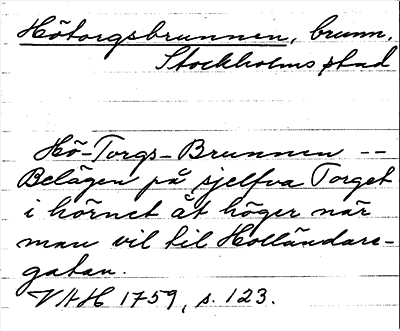 Hötorgsbrunnen, brunn,
Stockholms stad
Hö-Torgs-Brunnen --
Belägen på sjelfva Torget
i hörnet åt höger när
man vil til Holländare-
gatan.
VAH 1759, s. 123.